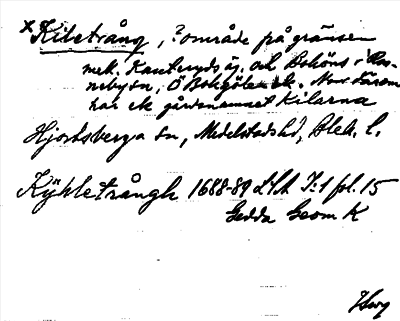 ×Kiletrång, ? område på gränsen
mell. Kanteryds äg. och Bohöns i Ron-
neby sn, Ö Bohgölen ek. Norr därom
har ek gårdsnamnet Kilarna
Hjortsberga sn, Medelstads hd, Blek. l.
Kÿhletrångh 1688-89 I:1 fol. 15
Gedda Geom K